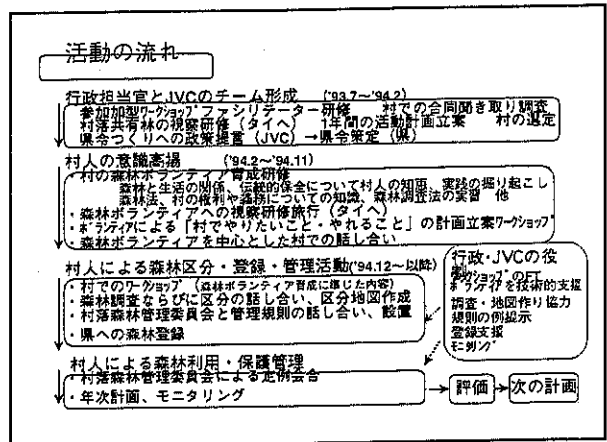 活動の流れ
行政担当官とJVCのチーム形成 ('93.7~'94.2)
参加加型ワークショップファシリテーター研修 村での合同聞き取り調査
村落共有林の視察研修(タイへ) 1年間の活動計画立案 村の選定
県令つくりへの政策提言(JVC)→県令策定(県)
村人の意識高揚 ('94.2~'94.11)
・村の森林ボランティア育成研修
森林と生活の関係、伝統的保全について村人の知恵、実践の掘り起こし
森林法、村の権利や義務についての知識、森林調査法の実習 他
・森林ボランティアへの視察研修旅行(タイへ)
・ボランティアによる「村でやりたいこと・やれること」の計画立案ワークショップ
・森林ボランティアを中心とした村での話し合い
村人による森林区分・登録・管理活動('94.12~以降)
・村でのワークショップ(森林ボランティア育成に準じた内容)
・森林調査ならびに区分の話し合い、区分地図作成
・村落森林管理委員会と管理規則の話し合い、設置
・県への森林登録
行政・JVCの役
割
ワークショップのFT
ボランティアを技術的支援
調査・地図作り協力
規則の例提示
登録支援
モニタリング
村人による森林利用・保護管理
・村落森林管理委員会による定例会合
・年次計画、モニタリング
→評価→次の計画